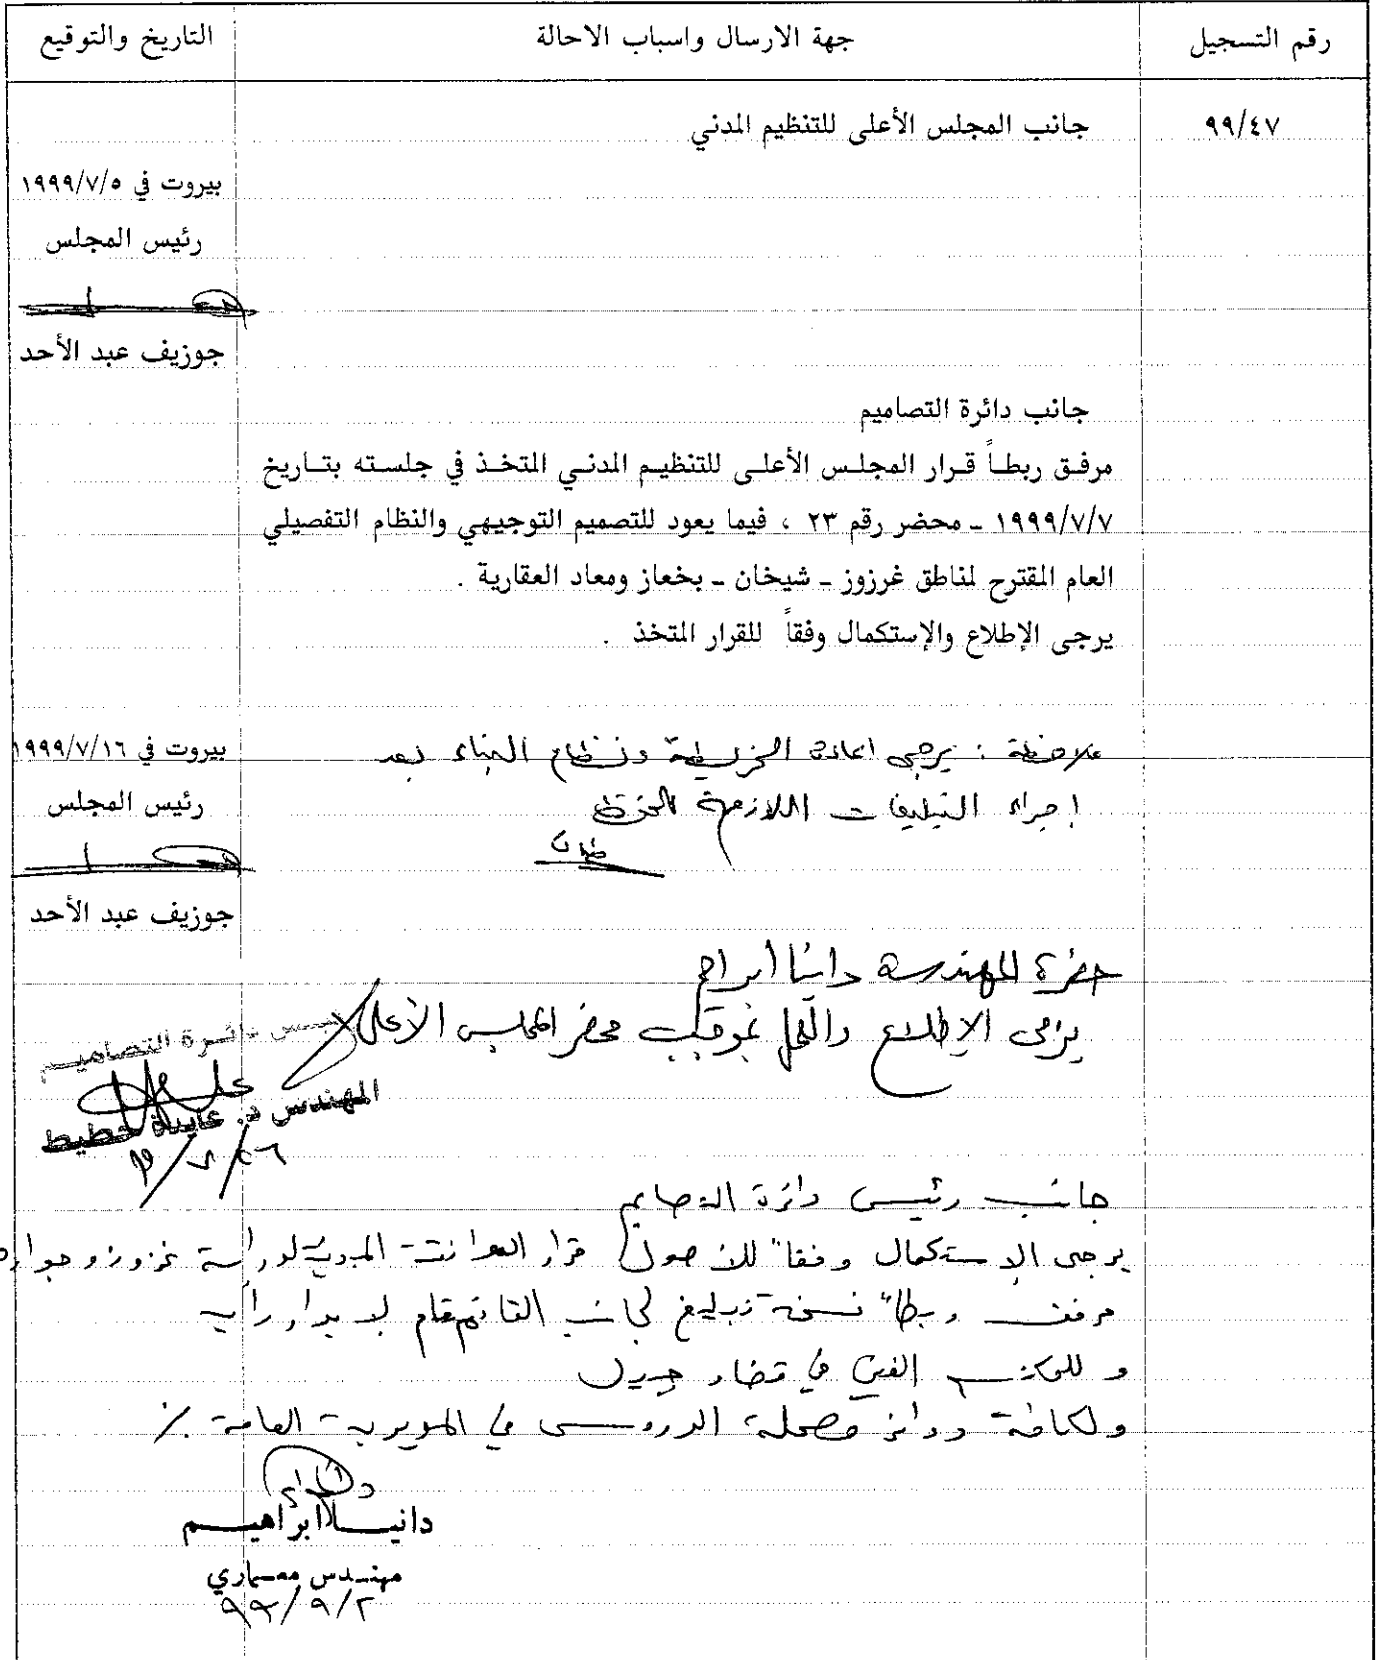 رقم التسجيل
جهة الارسال واسباب الاحالة
التاريخ والتوقيع
٩٩/٤٧
جانب المجلس الأعلى للتنظيم المدني
بيروت في ١٩٩٩/٧/٥
رئيس المجلس
جوزيف عبد الأحد
جانب دائرة التصاميم
مرفق ربطاً قرار المجلس الأعلى للتنظيم المدني المتخذ في جلسته بتاريخ
١٩٩٩/٧/٧ - محضر رقم ٢٣ ، فيما يعود للتصميم التوجيهي والنظام التفصيلي
العام المقترح لمناطق غرزوز - شيخان - بخعاز ومعاد العقارية .
يرجى الإطلاع والإستكمال وفقاً للقرار المتخذ .
بيروت في ١٩٩٩/٧/١٦
رئيس المجلس
جوزيف عبد الأحد
ملاحظة : يرجى اعادة الخريطة ونظام البناء بعد
إجراء التبليغات اللازمة
حضرة المهندسة دانيا ابراهيم
يرجى الإطلاع والعمل بموجب محضر المجلس الأعلى
رئيس دائرة التصاميم
المهندس د. عايدة خطيط
جانب رئيس دائرة التصاميم
يرجى الإستكمال وفقاً للأصول قرار الموافقة المبدئية لدراسة غرزوز وجوارها
مرفق ربطاً نسخة تبليغ لجانب القائمقام لإبداء رأيه
وللمكتب الفني في قضاء جبيل
ولكافة دوائر مصلحة الدروس في المديرية العامة ./.
دانيا ابراهيم
مهندس معماري
٩٩/٩/٢